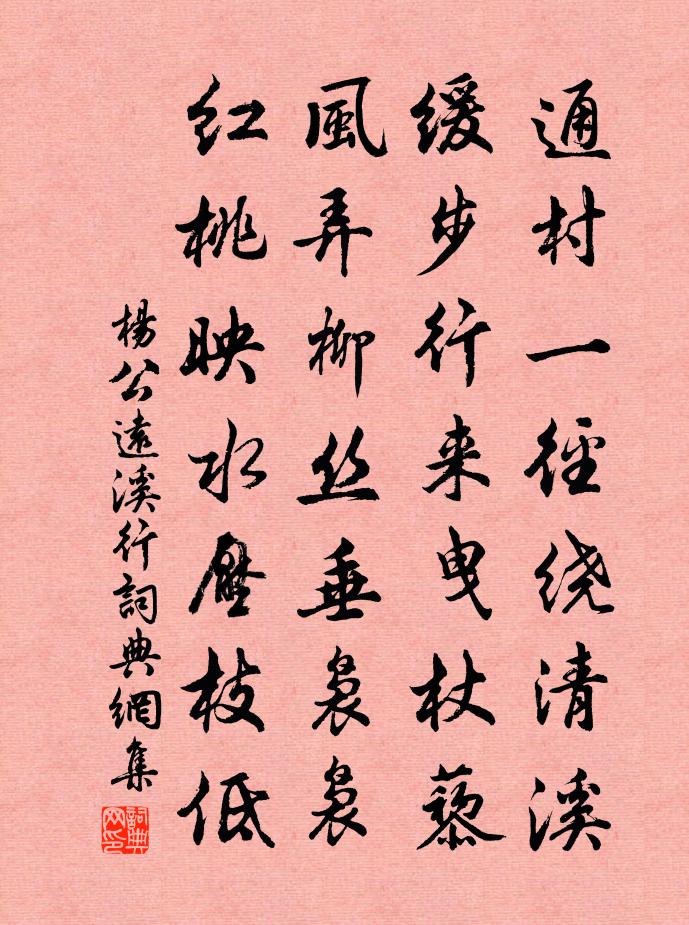 通村一径绕清溪
缓步行来曳杖藜
風弄柳丝垂袅袅
红桃映水壓枝低
楊公遠溪行詞典網集
詞典网印